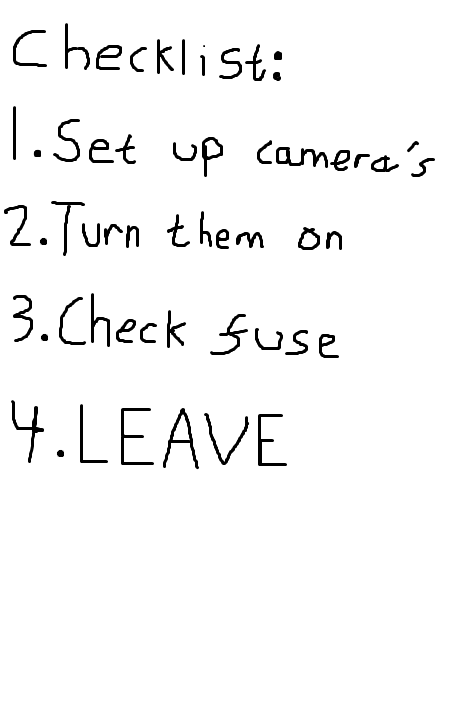 Checklist:
1. Set up camera's
2. Turn them on
3. Check fuse
4. LEAVE